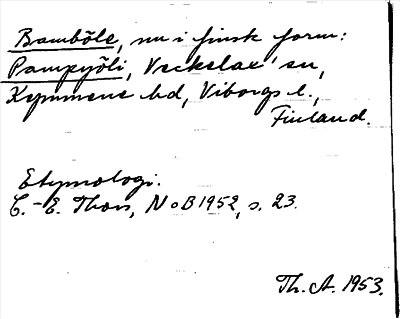 Bamböle, nu i finsk form:
Pampyöli, Veckelax sn,
Kymmene hd, Viborgs l.,
Finland.
Etymologi.
C.-E. Thors, NoB 1952, s. 23.
Th. A. 1953.